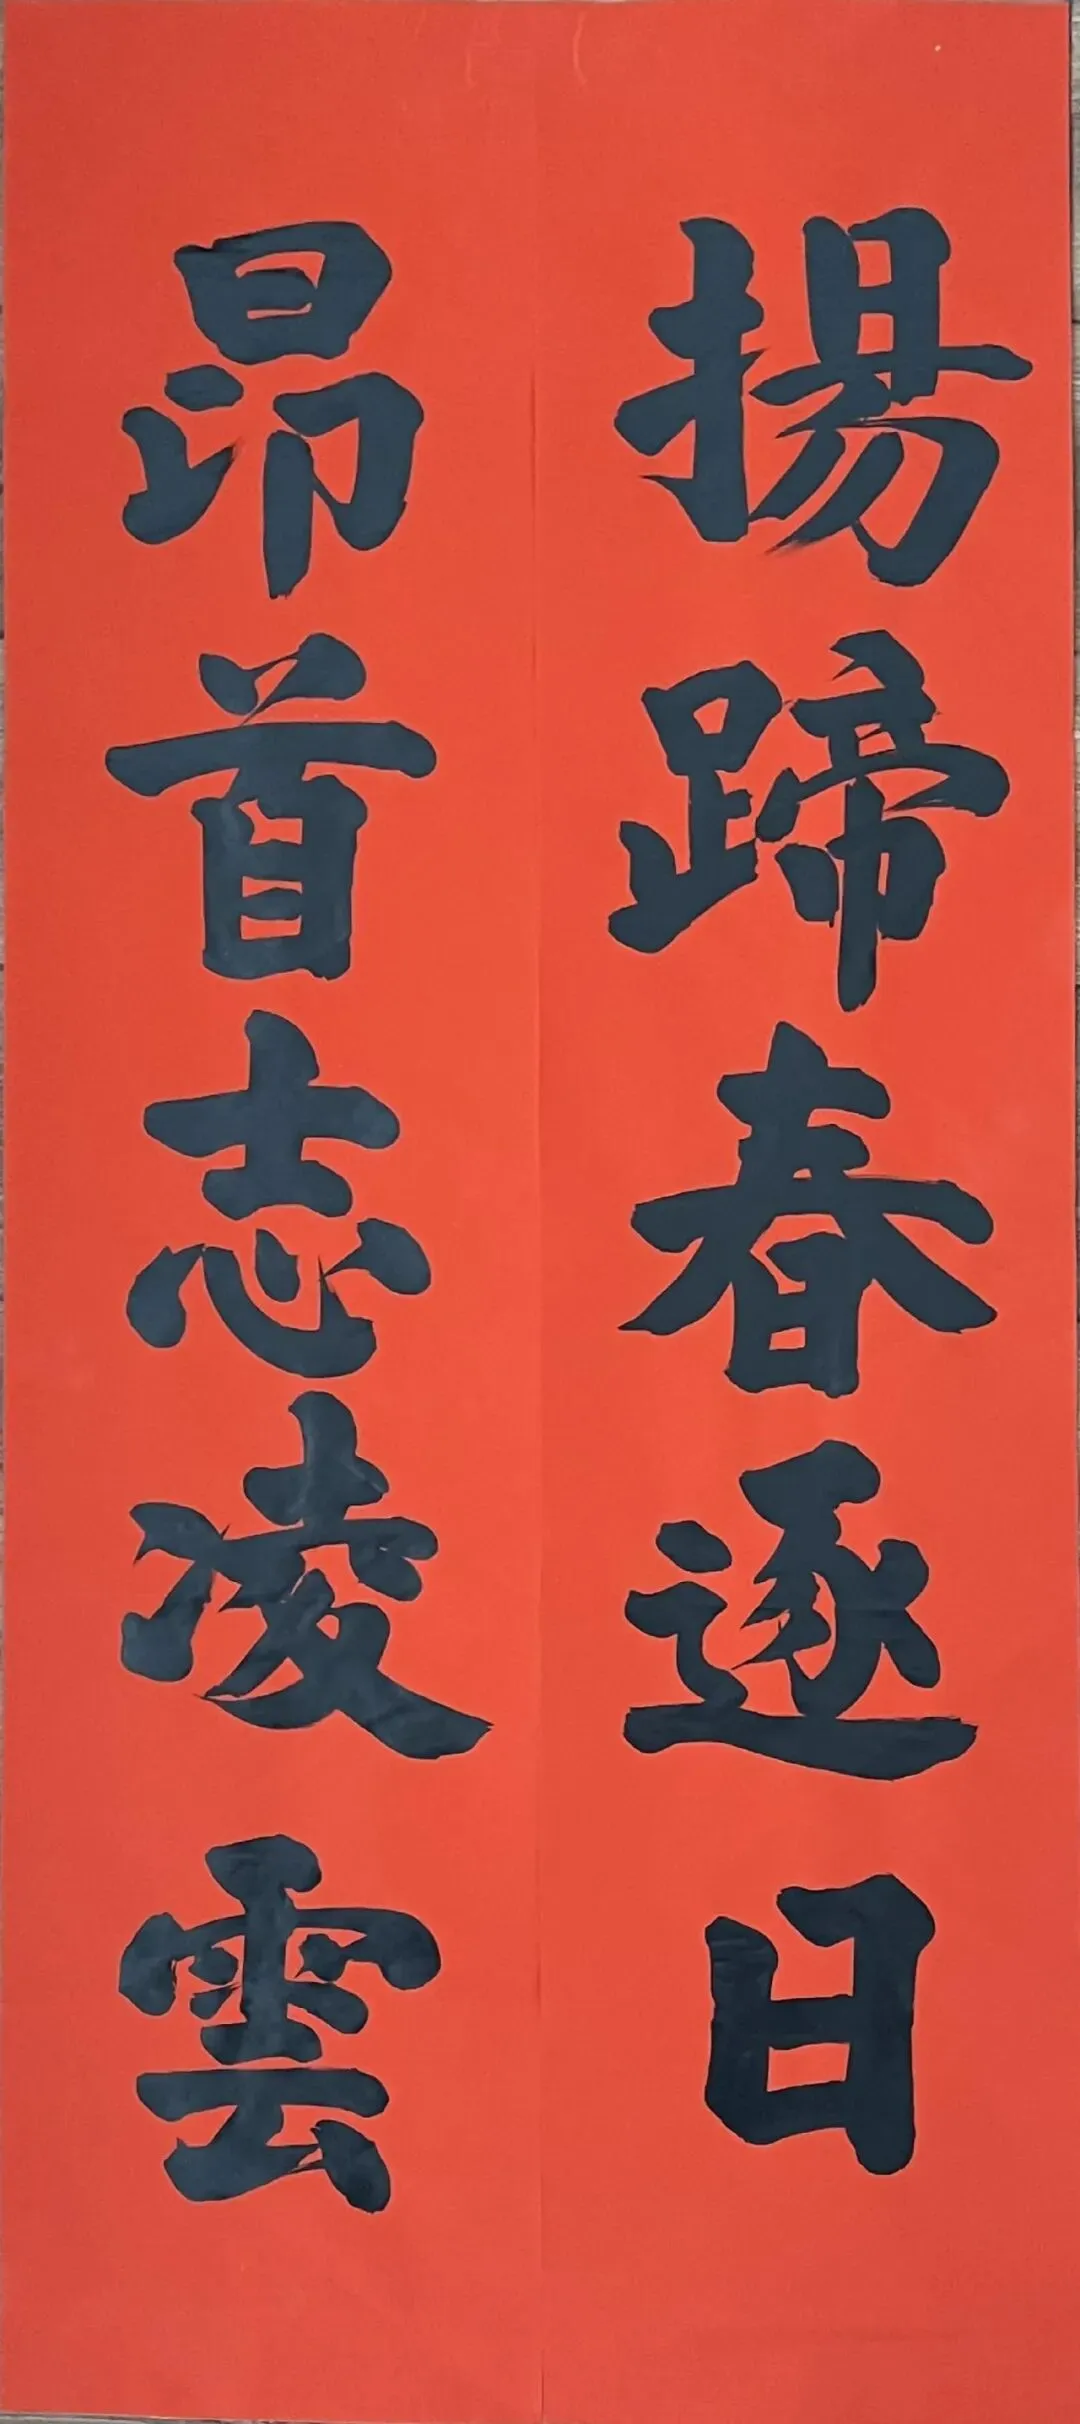 揚蹄春逐日
昂首志凌雲